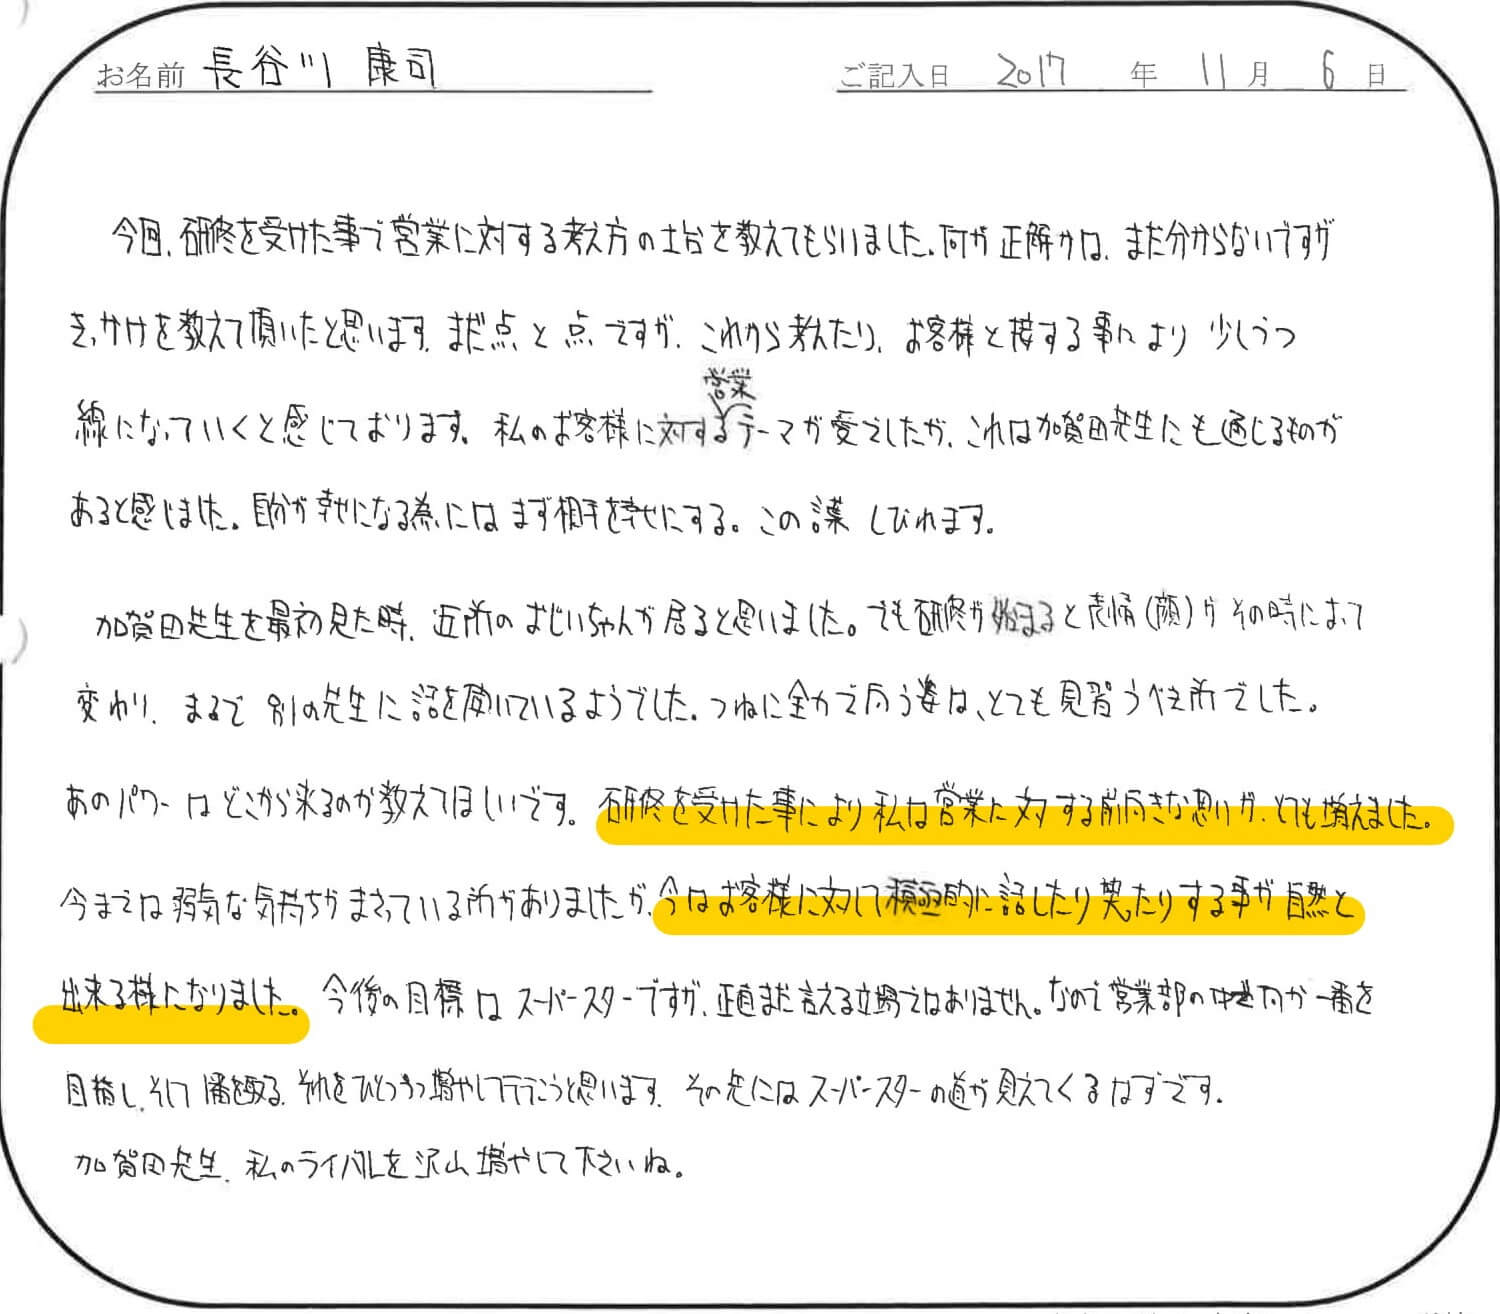 お名前 長谷川 康司 ご記入日 2017 年 11 月 6 日
今回、研修を受けた事で営業に対する考え方の土台を教えてもらいました。何が正解かは、まだ分からないですが
きっかけを教えて頂いたと思います。まだ点と点ですが、これから考えたり、お客様と接する事により少しづつ
営業
線になっていくと感じております。私のお客様に対するテーマが愛でしたが、これは加賀田先生にも通じるものが
あると感じました。自分が幸せになる為にはまず相手を幸せにする。この言葉しびれます。
加賀田先生を最初見た時、近所のおじいちゃんが居ると思いました。でも研修が始まると表情(顔)がその時によって
変わり、まるで別の先生に話を聞いているようでした。つねに全力で向う姿は、とても見習うべき所でした。
あのパワーはどこから来るのか教えてほしいです。研修を受けた事により私は営業に対する前向きな思いが、とても増えました。
今までは弱気な気持ちがまさっている所がありましたが、今はお客様に対して積極的に話したり笑ったりする事が自然と
出来る様になりました。今後の目標はスーパースターですが、正直まだ言える立場ではありません。なので営業部の中で何か一番を
目指し、そして1番を取る。それをひとつづつ増やして行こうと思います。その先にはスーパースターの道が見えてくるはずです。
加賀田先生、私のライバルを沢山増やして下さいね。